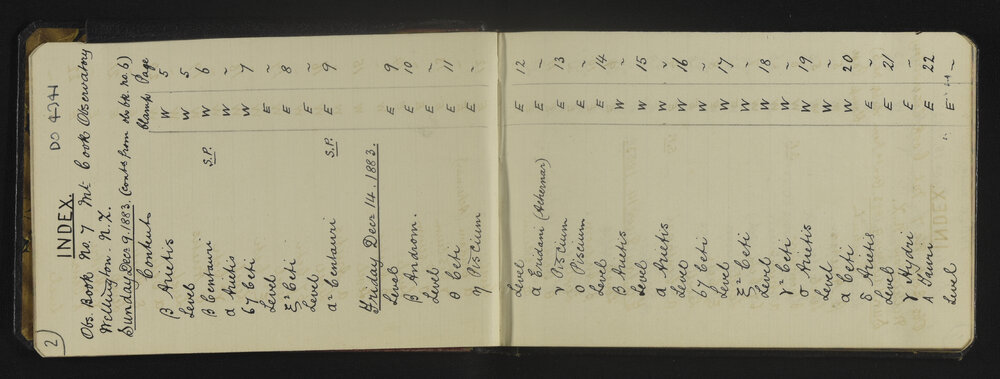 2)
DO 4741
INDEX.
Obs. Book No. 7 Mt Cook Observatory
Wellington N.Z.
Sunday Decr 9. 1883. (Contd from Obs. bk. no. 6)
Contents Clamp Page
β Arietis W 5
Level W 5
β Centauri S.P. W 6
α Arietis W ~
67 Ceti W 7
Level E ~
ξ² Ceti E 8
Level E ~
α² Centauri S.P. E 9
Friday Decr 14. 1883.
Level E 9
β Androm. E 10
Level E ~
θ Ceti E 11
η Piscium E ~
Level E 12
α Eridani (Achernar) E ~
ν Piscium E 13
ο Piscium E ~
Level E 14
β Arietis W ~
Level W 15
α Arietis W ~
Level W 16
67 Ceti W ~
Level W 17
ξ² Ceti W ~
Level W 18
γ² Ceti W ~
σ Arietis W 19
Level W ~
α Ceti W 20
δ Arietis E ~
Level E 21
γ Hydri E ~
A Tauri E 22
Level E ~